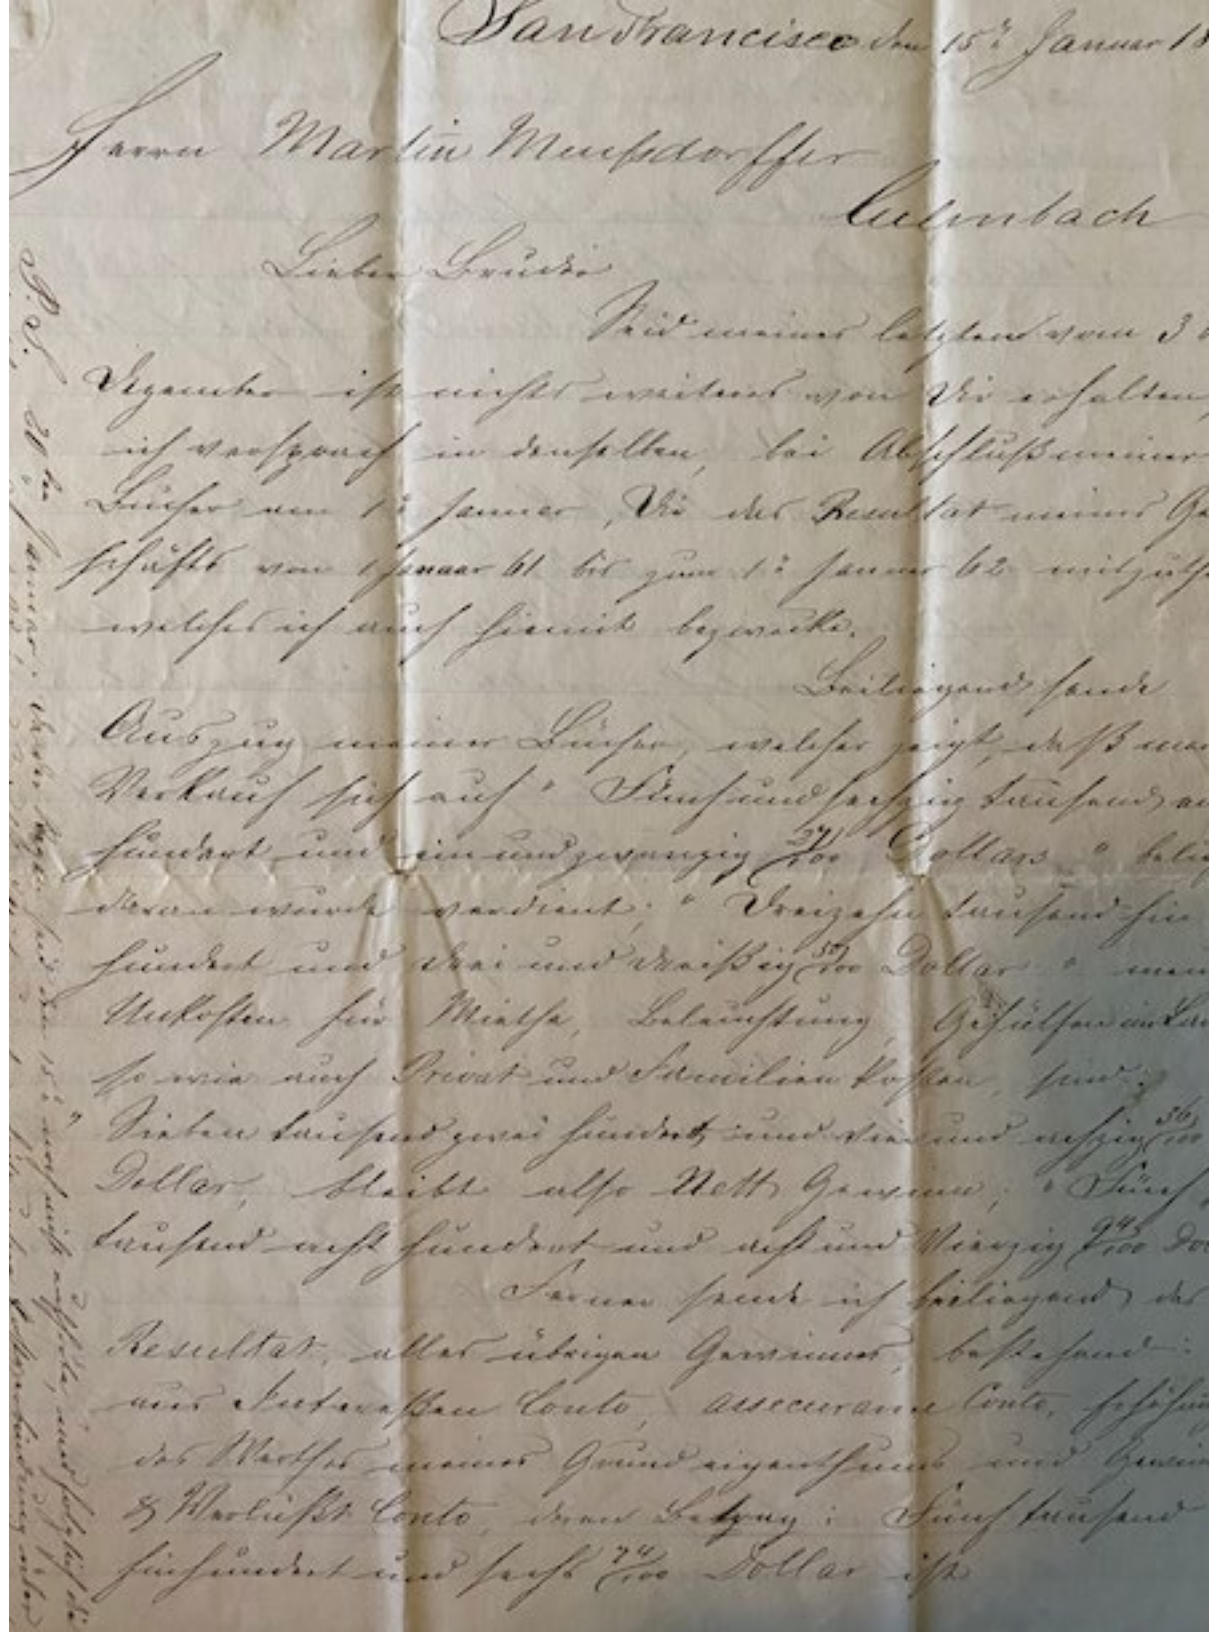 San Francisco den 15ᵗ Januar 18
Herrn Martin Meussdorffer
Culmbach
Lieber Bruder
Seid meines letzten vom 3
Dezember ist nichts weiteres von Dir erhalten,
ich versprach in denselben, bei Abschluß meiner
Bücher am 1ᵗ Januar, Dir das Resultat meines Ge
schäfts von 1 Januar 61 bis zum 1ᵗ Januar 62 mitzuthe
welches ich auch hiemit bezwecke.
Beiliegend sende
Auszug meiner Bücher, welcher zeigt, daß mein
Verkauf sich auf " Fünf und sechzig tausend
hundert und ein und zwanzig 27/100 Dollars " belie
daran wurde verdient; " Dreizehn tausend ein
hundert und drei und dreißig 50/100 Dollar " mein
Unkosten für Miethe, Beleuchtung, Gehülfen im La
so wie auch Privat und Familien Kosten, sind: "
Sieben tausend zwei hundert und vier und achzig 56/100
Dollar, bleibt also Nett Gewinn; " Fünf
tausend acht hundert und acht und Vierzig 94/100 Do
Ferner sende ich beiliegend das
Resultat, alles übrigen Gewinnes, bestehend:
aus Interessen Conto, Assecuranz Conto, Erhöhung
des Werthes meines Grundeigenthums und Gewinn
& Verlußt Conto, deren Betrag: Fünf tausend
fünfhundert und sechs 74/100 Dollar ist
P.S. 20ᵗᵉⁿ Januar.